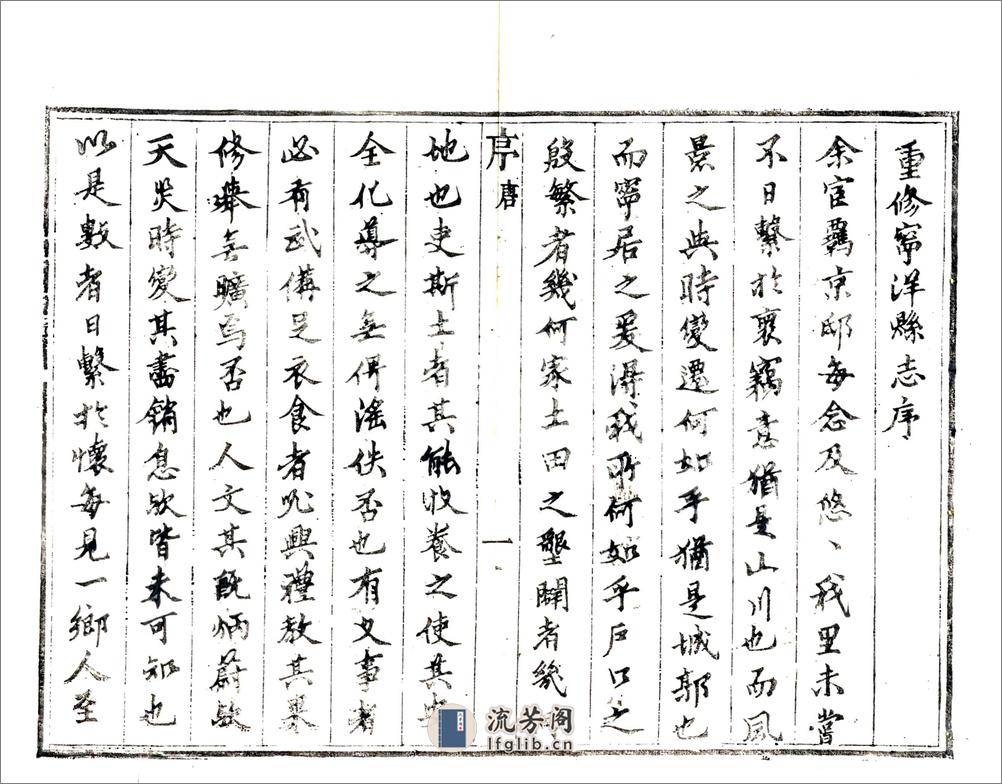 重修寧洋縣志序
余宦羈京邸每念及悠、我里未嘗
不日繫於衷竊意猶是山川也而風
景之與時變遷何如乎猶是城郭也
而寧居之爰得我所何如乎戶口之
殷繁者幾何家土田之墾闢者幾
序 唐 一
地也吏斯土者其能牧養之使其
全化導之無俾淫佚否也有文事者
必有武備足衣食者始興禮教其果
修舉無曠焉否也人文其既炳蔚歟
天災時變其盡銷息歟皆未可知也
以是數者日繫於懷每見一鄉人至
流芳阁
lfglib.cn